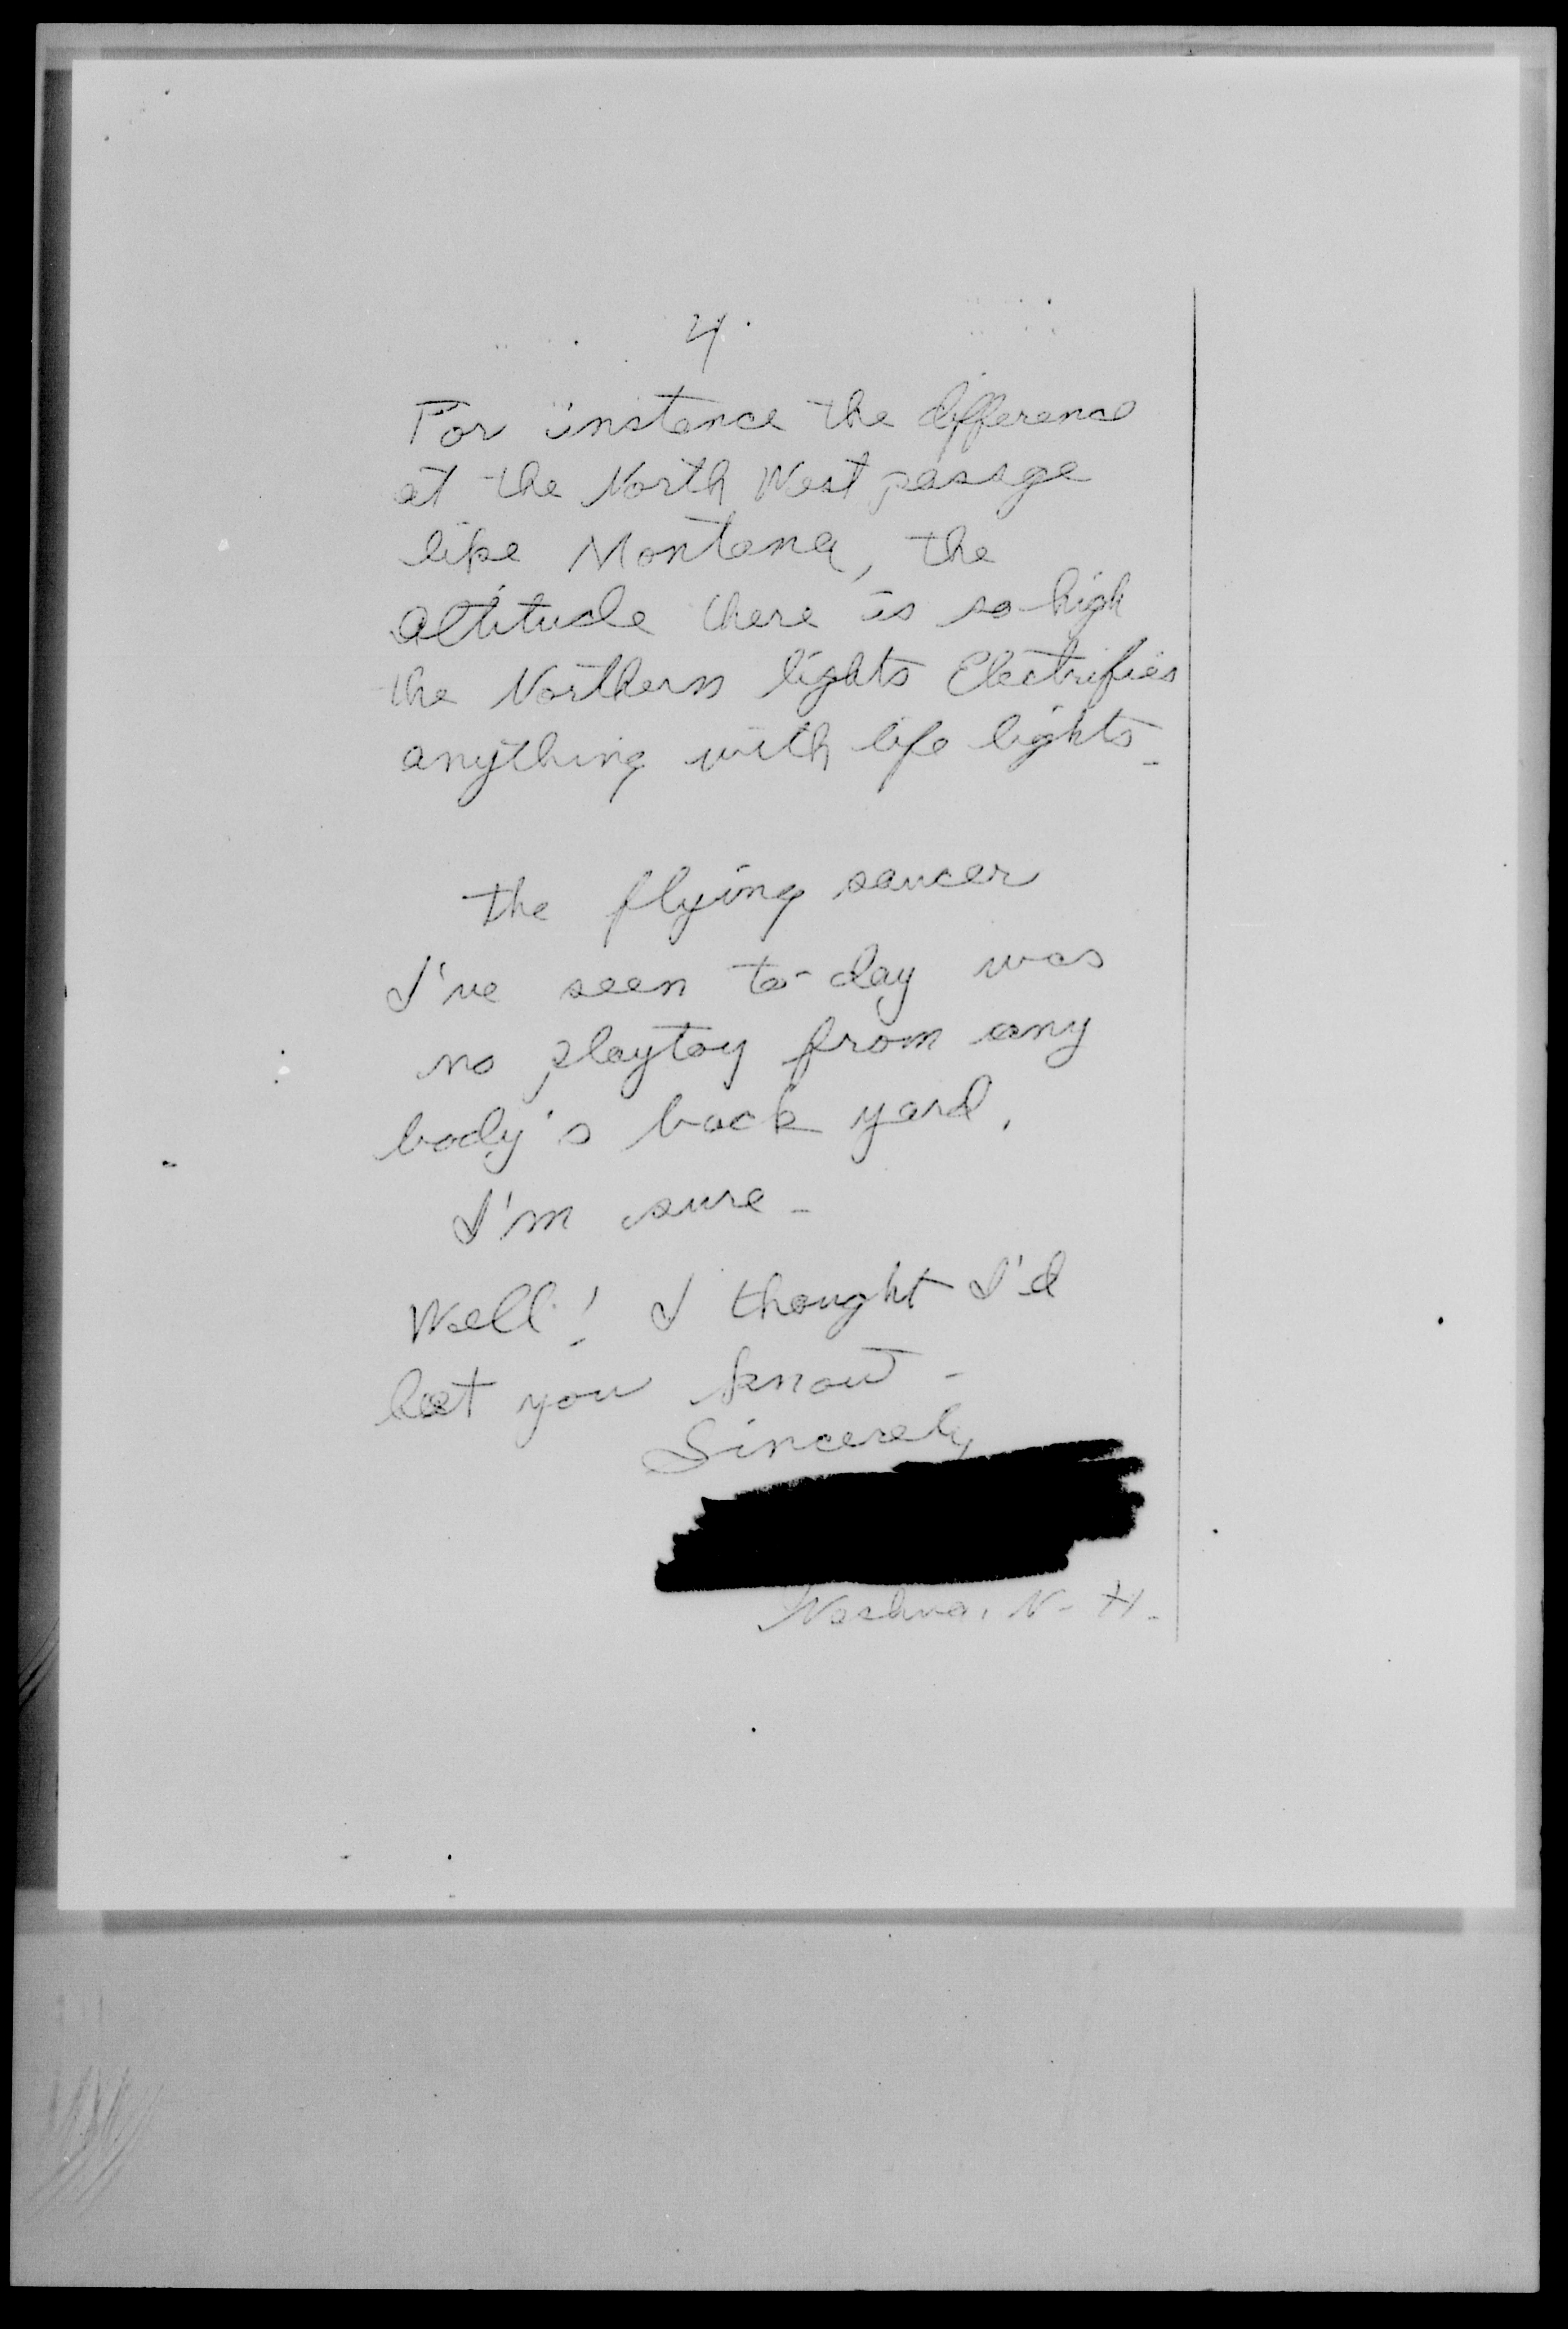 4.
For instance the difference
at the North West passge
like Montana, the
altitude there is so high
the Northern lights Electrifies
anything with life lights -
the flying saucer
I've seen to-day was
no playtoy from any
body's back yard,
I'm sure -
Well! I thought I'd
let you know -
Sincerely
Nashua, N- H-